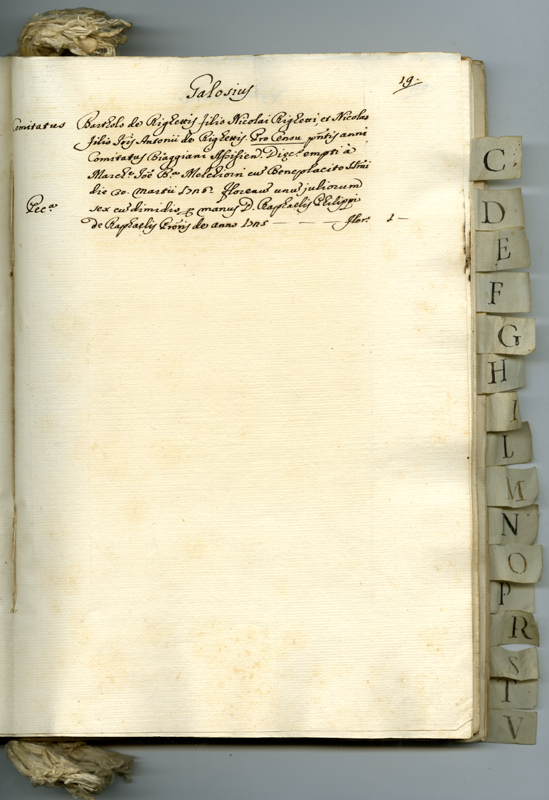 Galosius
19.
Comitatus Bartholo de Righettis filio Nicolai Righetti, et Nicolao
filio Jois Antonii de Righettis Pro Censu pntis anni
Comitatus Biaggiani Assisien. Dięc. empti à
March. Melchiori cu Beneplacito
die 20. martii 1716. florenu unu juliorum
Pec.a sex cu dimidio p manus D. Raphaelis Philippi
de Raphaelis de anno 1745 — — — flor. 1 —
C
D
E
F
G
H
I
L
M
N
O
P
R
S
T
V